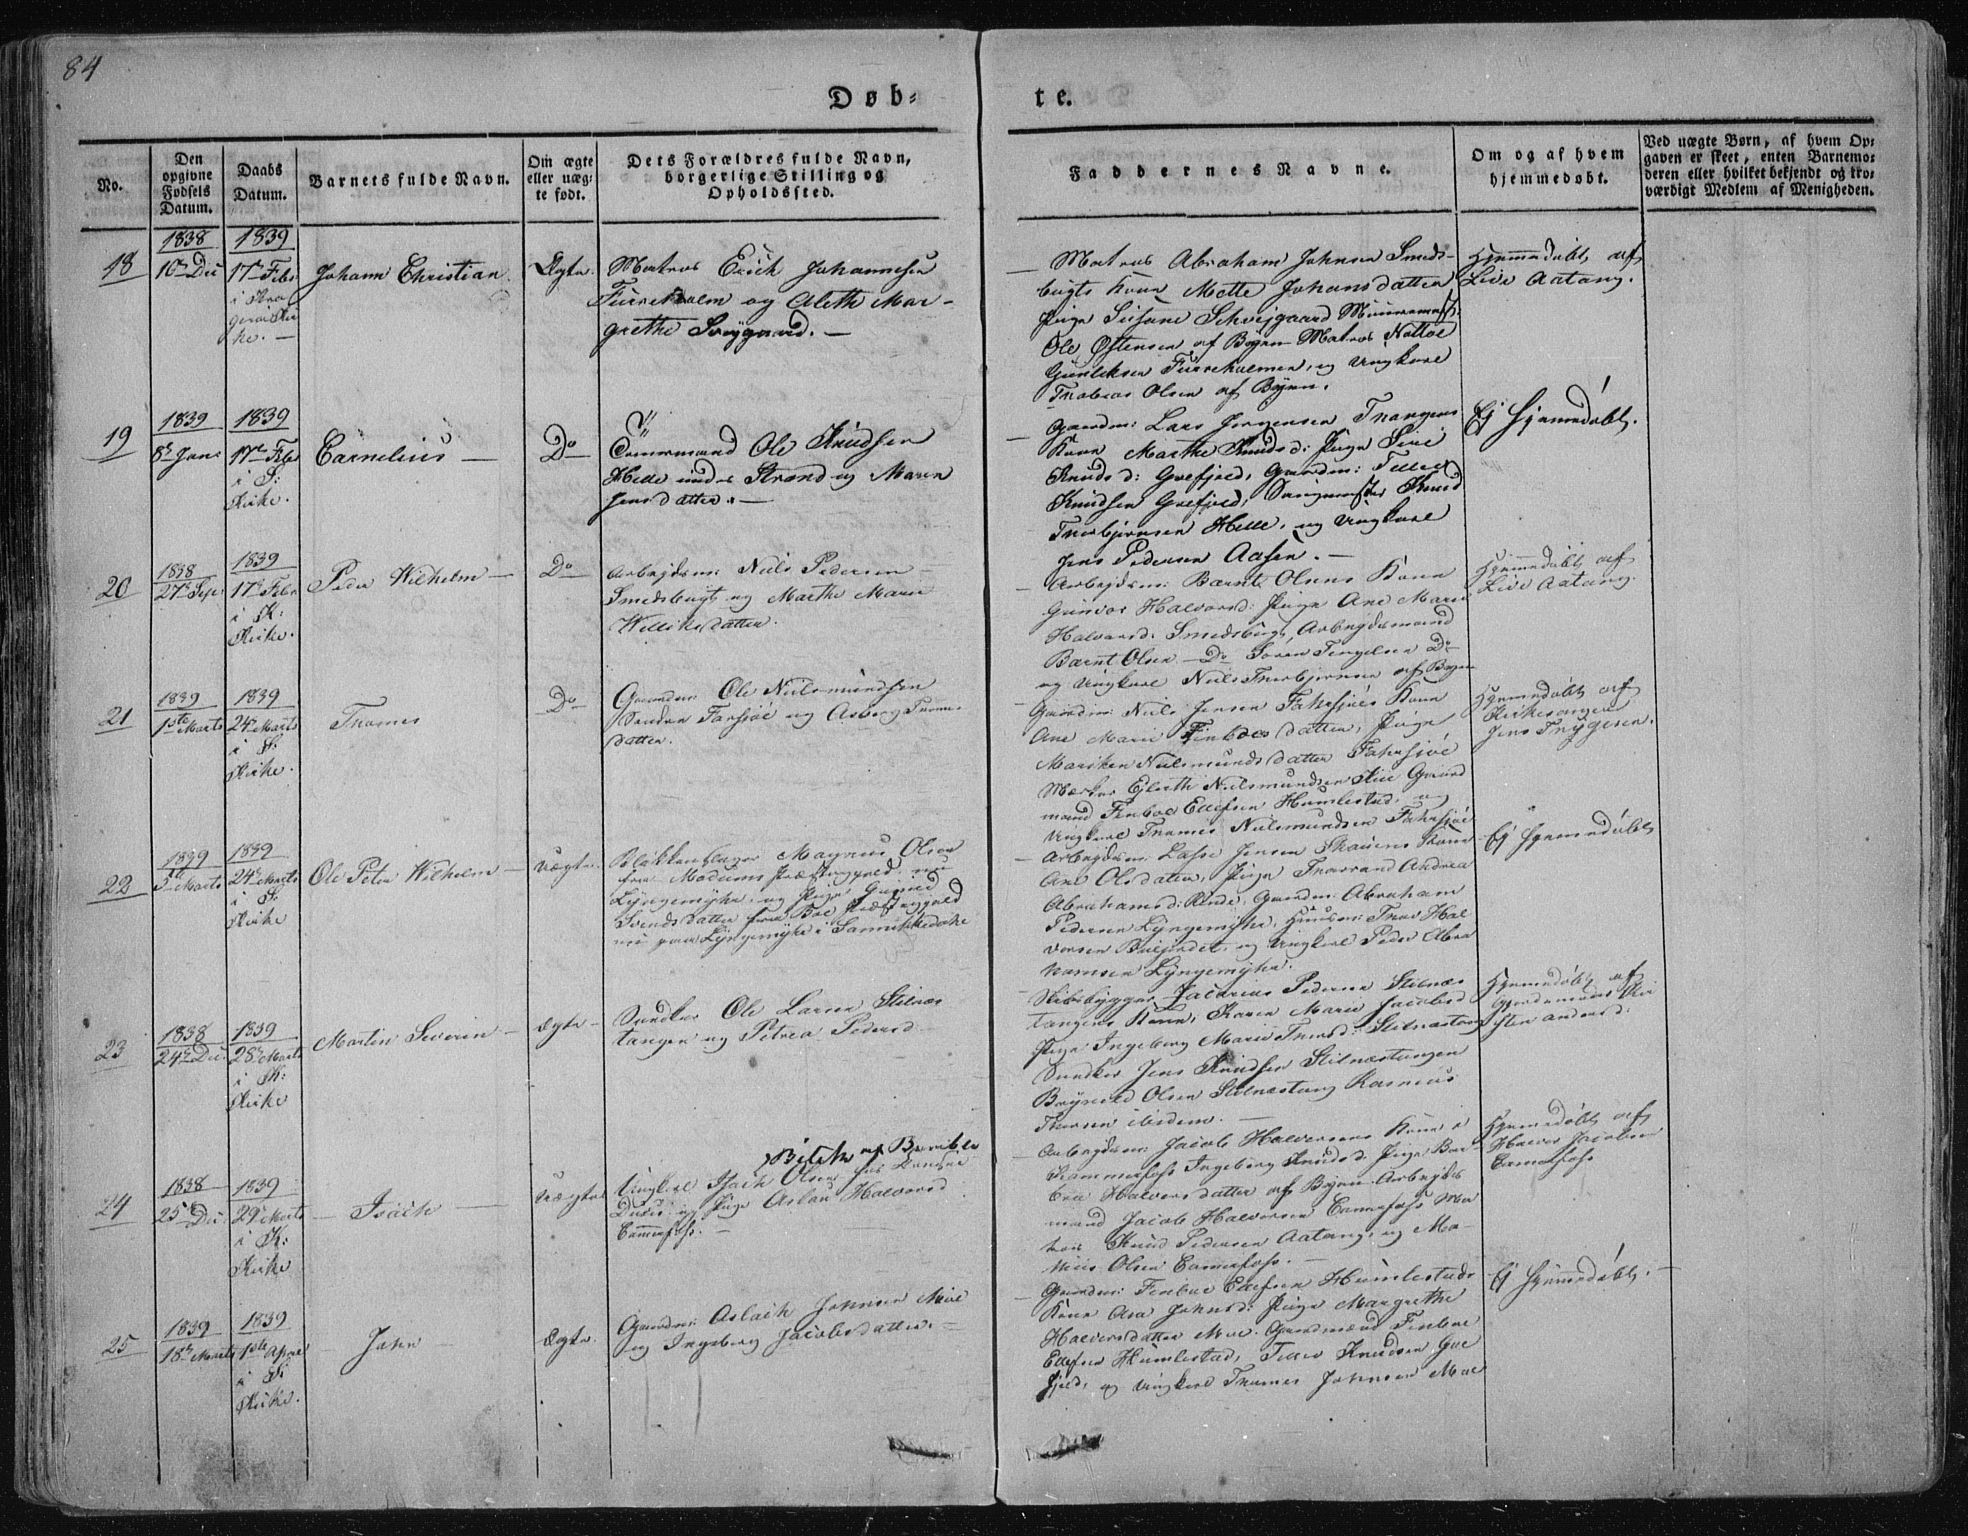 84
Døb-
te.
No.
Den opgivne Fødsels Datum.
Daabs Datum.
Barnets fulde Navn.
Om ægte eller uægte født.
Dets Forældres fulde Navn, borgerlige Stilling og Opholdssted.
Faddernes Navne.
Om og af hvem hjemmedøbt.
Ved uægte Børn, af hvem Opgaven er skeet, enten Barnemoderen eller hvilket bekjendt og troværdigt Medlem af Menigheden.
18
1838
10de Dec
1839
17de Febr
i Kra
gerøe Kir
ke.
Johann Christian
Ægte.
Matros Erich Johannesen
Furreholm og Aleth Mar-
grethe Svejgaard.
Matros Abraham Johnsen Smeds-
bugts Kone Mette Johansdatter
Pige Susane Schvejgaard
Ole Østensen af Byen Matros
Furreholmen, og Ungkarl
Thobias Olsen af Byen.
Hjemmedøbt af
Live Aatang.
19
1839
8de Jan:
1839
17de Febr
i S:
Kirke.
Carnelius
Do
Tømermand Ole Knudsen
Helle under Strand og Maren
Jensdatter.
Gaardm: Lars Jørgensen Tangens
Kone Marthe Knudsd: Pige Sivi
Knudsd: Grefjeld, Gaardm: Tellef
Knudsen Grefjeld, Knud
Thorbjørnsen Helle, og Ungkarl
Jens Pedersen Aasen.
Ej hjemmedøbt.
20
1838
27de Sept
1839
17de Febr
i K:
Kirke.
Peder Wilhelm
Do
Arbejdsm: Niels Pedersen
Smedsbugt og Marthe Marie
Willikesdatter.
Arbejdsm: Barnt Olsens Kone
Gunvor Halvorsd: Pige Ane Marie
Halvorsd: Smedsbugt, Arbejdsmand
Barnt Olsen Do Søren Tengelsen Do
og Ungkarl Niels Thorbjørnsen af Byen
Hjemmedøbt af
Live Aatang.
21
1839
1ste Marts
1839
24de Marts
i S:
Kirke.
Thomes
Do
Gaardm: Ole Nielsmundsen
Søndre Farsjøe og Asberg Thomes
datter.
Gaardm: Niels Jensen Farsjøes Kone
Ane Marie Finboesdatter, Pige
Mariken Nielsmundsdatter Farsjøe
Gaard
mand Finboe Ellefsen Humlestad, og
Ungkarl Thomes Nielsmundsen Farsjøe
Hjemmedøbt af
Kirkesanger
Jens Thygesen.
22
1839
5te Marts
1839
24de Marts
i S:
Kirke
Ole Peter Wilhelm
Uægte.
Blikkenslager Magnus Olsen
fra Modums Præstegjeld, nu
Lyngemyhr, og Pige Gunild
Svendsdatter fra Boe Præstegjeld
nu paa Lyngemyhr i Sannikedahl
Arbejdsm: Lasse Jensen Skauens Kone
Ane Olsdatter, Pige Andrea
Abrahamsd: Gaardm: Abraham
Pedersen Lyngemyhr, Huusm: Thor Hal
vorsen og Ungkarl Peder Abra
hamsen Lyngemyhr.
Ej hjemmedøbt
23
1838
24de Dec.
1839
28de Marts
i K:
Kirke
Martin Severin
Ægte
Snedker Ole Larsen Stilnæs
tangen og Petrea Pedersd
Skibsbygger Zacharius Pedersen Stilnæs
tangens Kone, Karen Marie Jacobsd
Pige Ingeborg Marie Thorsd: Stilnæstang
Snedker Jens Knudsen Stilnæstangen
Brynild Olsen Stilnæstang Rasmus
Thorsen ibidem.
Hjemmedøbt af
Gjordemoder Kir
sten Andersd:
24
1838
25de Dec.
1839
29de Marts
i K:
Kirke
Isach
Uægte
af Bamble
Ungkarl Isach Olsen
og Pige Aslau Halvorsd
Cammerfoss.
Arbejdsm: Jacob Halvorsens Kone i
Kammerfoss Ingeborg Knudsd Pige Bar
bra Halvorsdatter af Byen Arbejds
mand Jacob Halvorsen Camerfoss Ma
tros Knud Pedersen Aatang, og Ma
thias Olsen Camerfoss.
Hjemmedøbt af
Halvor Jacobsen
Camerfoss
25
1839
18de Marts
1839
1ste April
i S:
Kirke.
John
Ægte.
Gaardm: Aslach Johnsen Moe
og Ingeborg Jacobsdatter.
Gaardm: Finboe Ellefsen Humlestads
Kone Asa Johnsd: Pige Margrethe
Halvorsdatter Moe. Gaardmand Finboe
Ellefsen Humlestad, Tellef Knudsen Gre
fjeld, og Ungkarl Thomes Johnsen Moe
Ej hjemmedøbt.